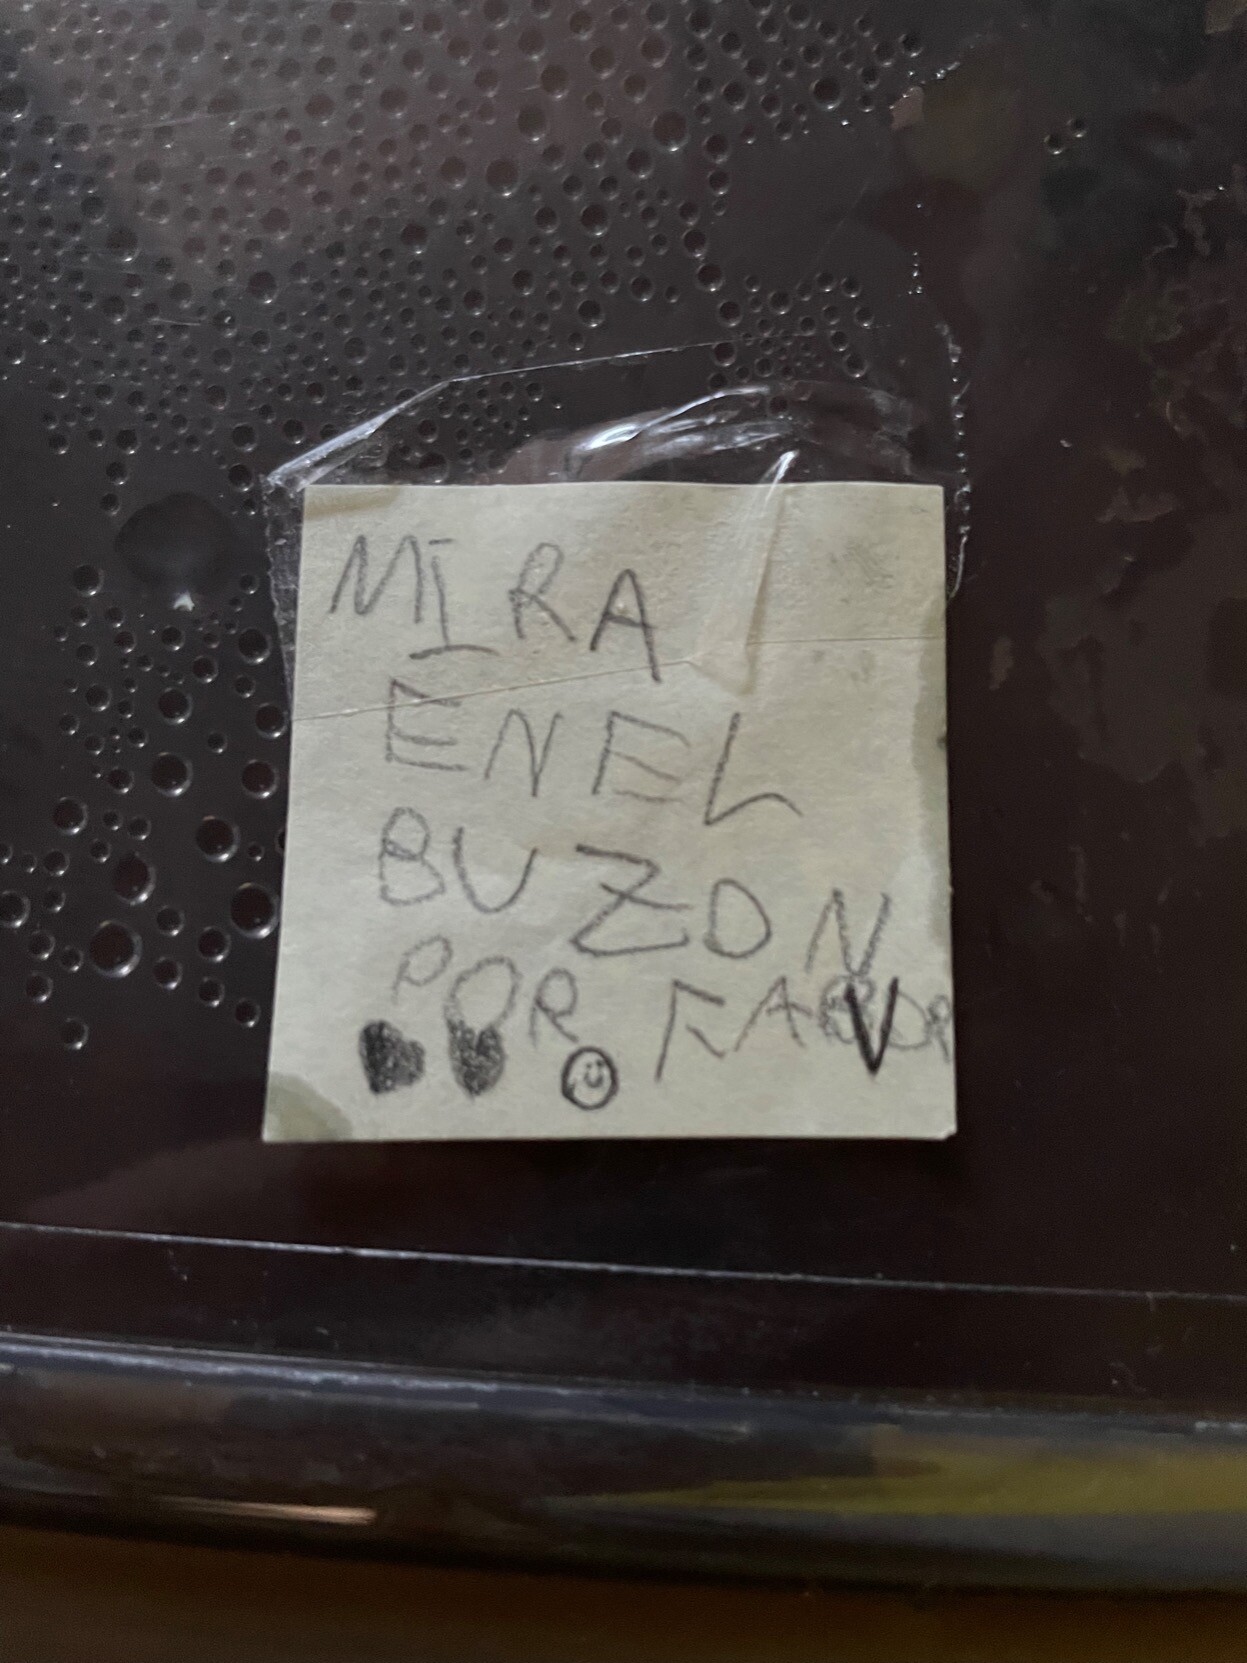 MIRA
EN EL
BUZON
POR FAVOR